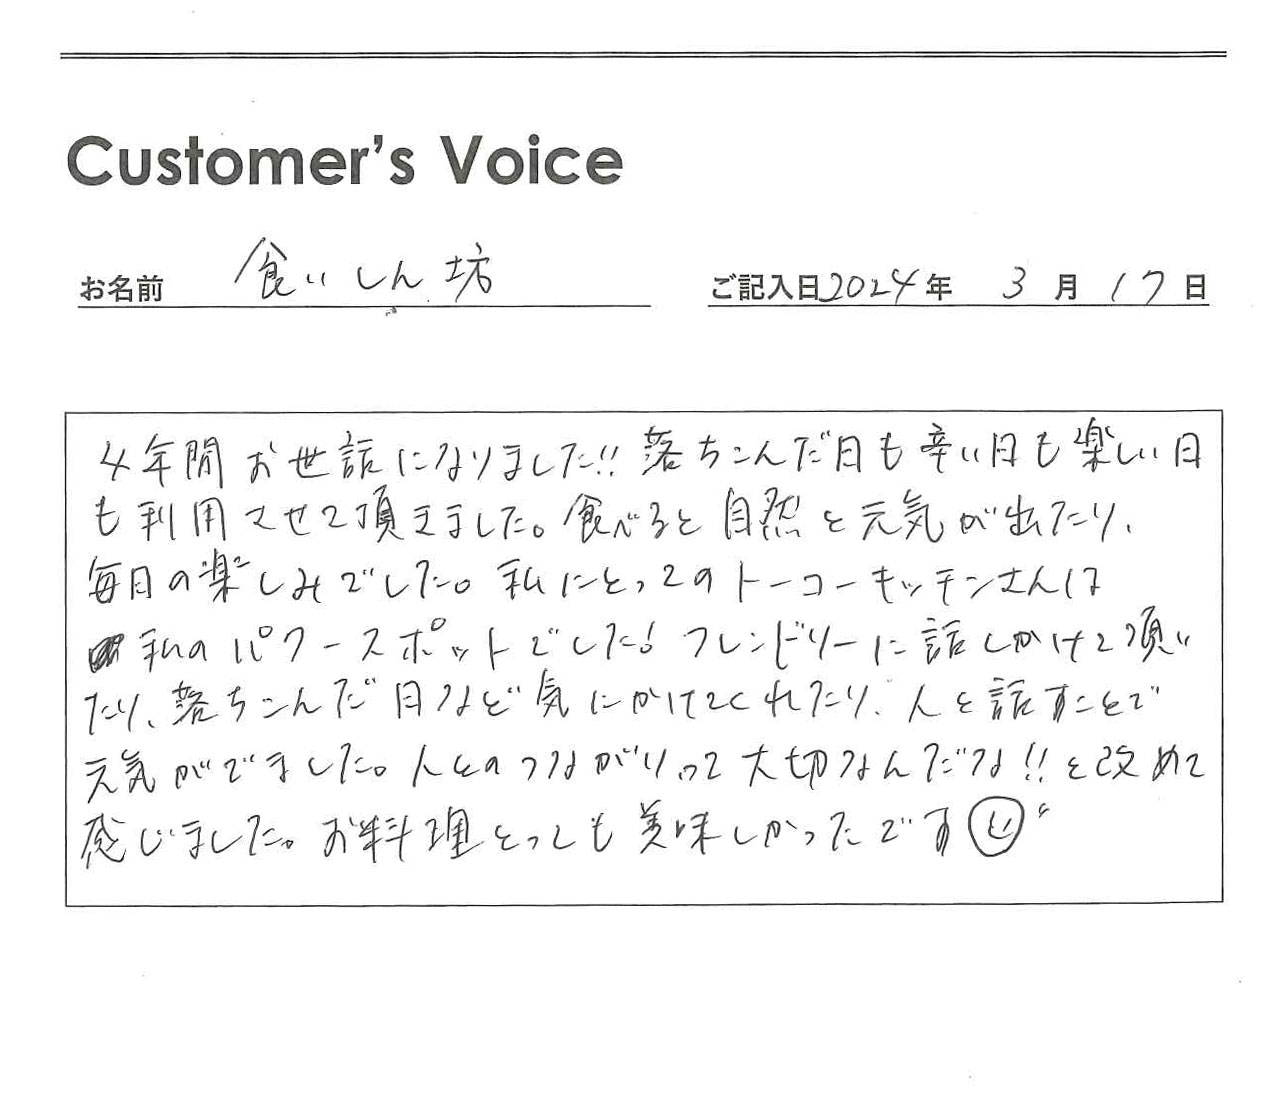 Customer's Voice
お名前 食いしん坊 ご記入日2024年 3月17日
4年間お世話になりました!!落ちこんだ日も辛い日も楽しい日
も利用させて頂きました。食べると自然と元気が出たり、
毎日の楽しみでした。私にとってのトーコーキッチンさんは
私のパワースポットでした!フレンドリーに話しかけて頂い
たり、落ちこんだ日など気にかけてくれたり、人と話すことで
元気がでました。人とのつながりって大切なんだな!!と改めて
感じました。お料理とっても美味しかったです